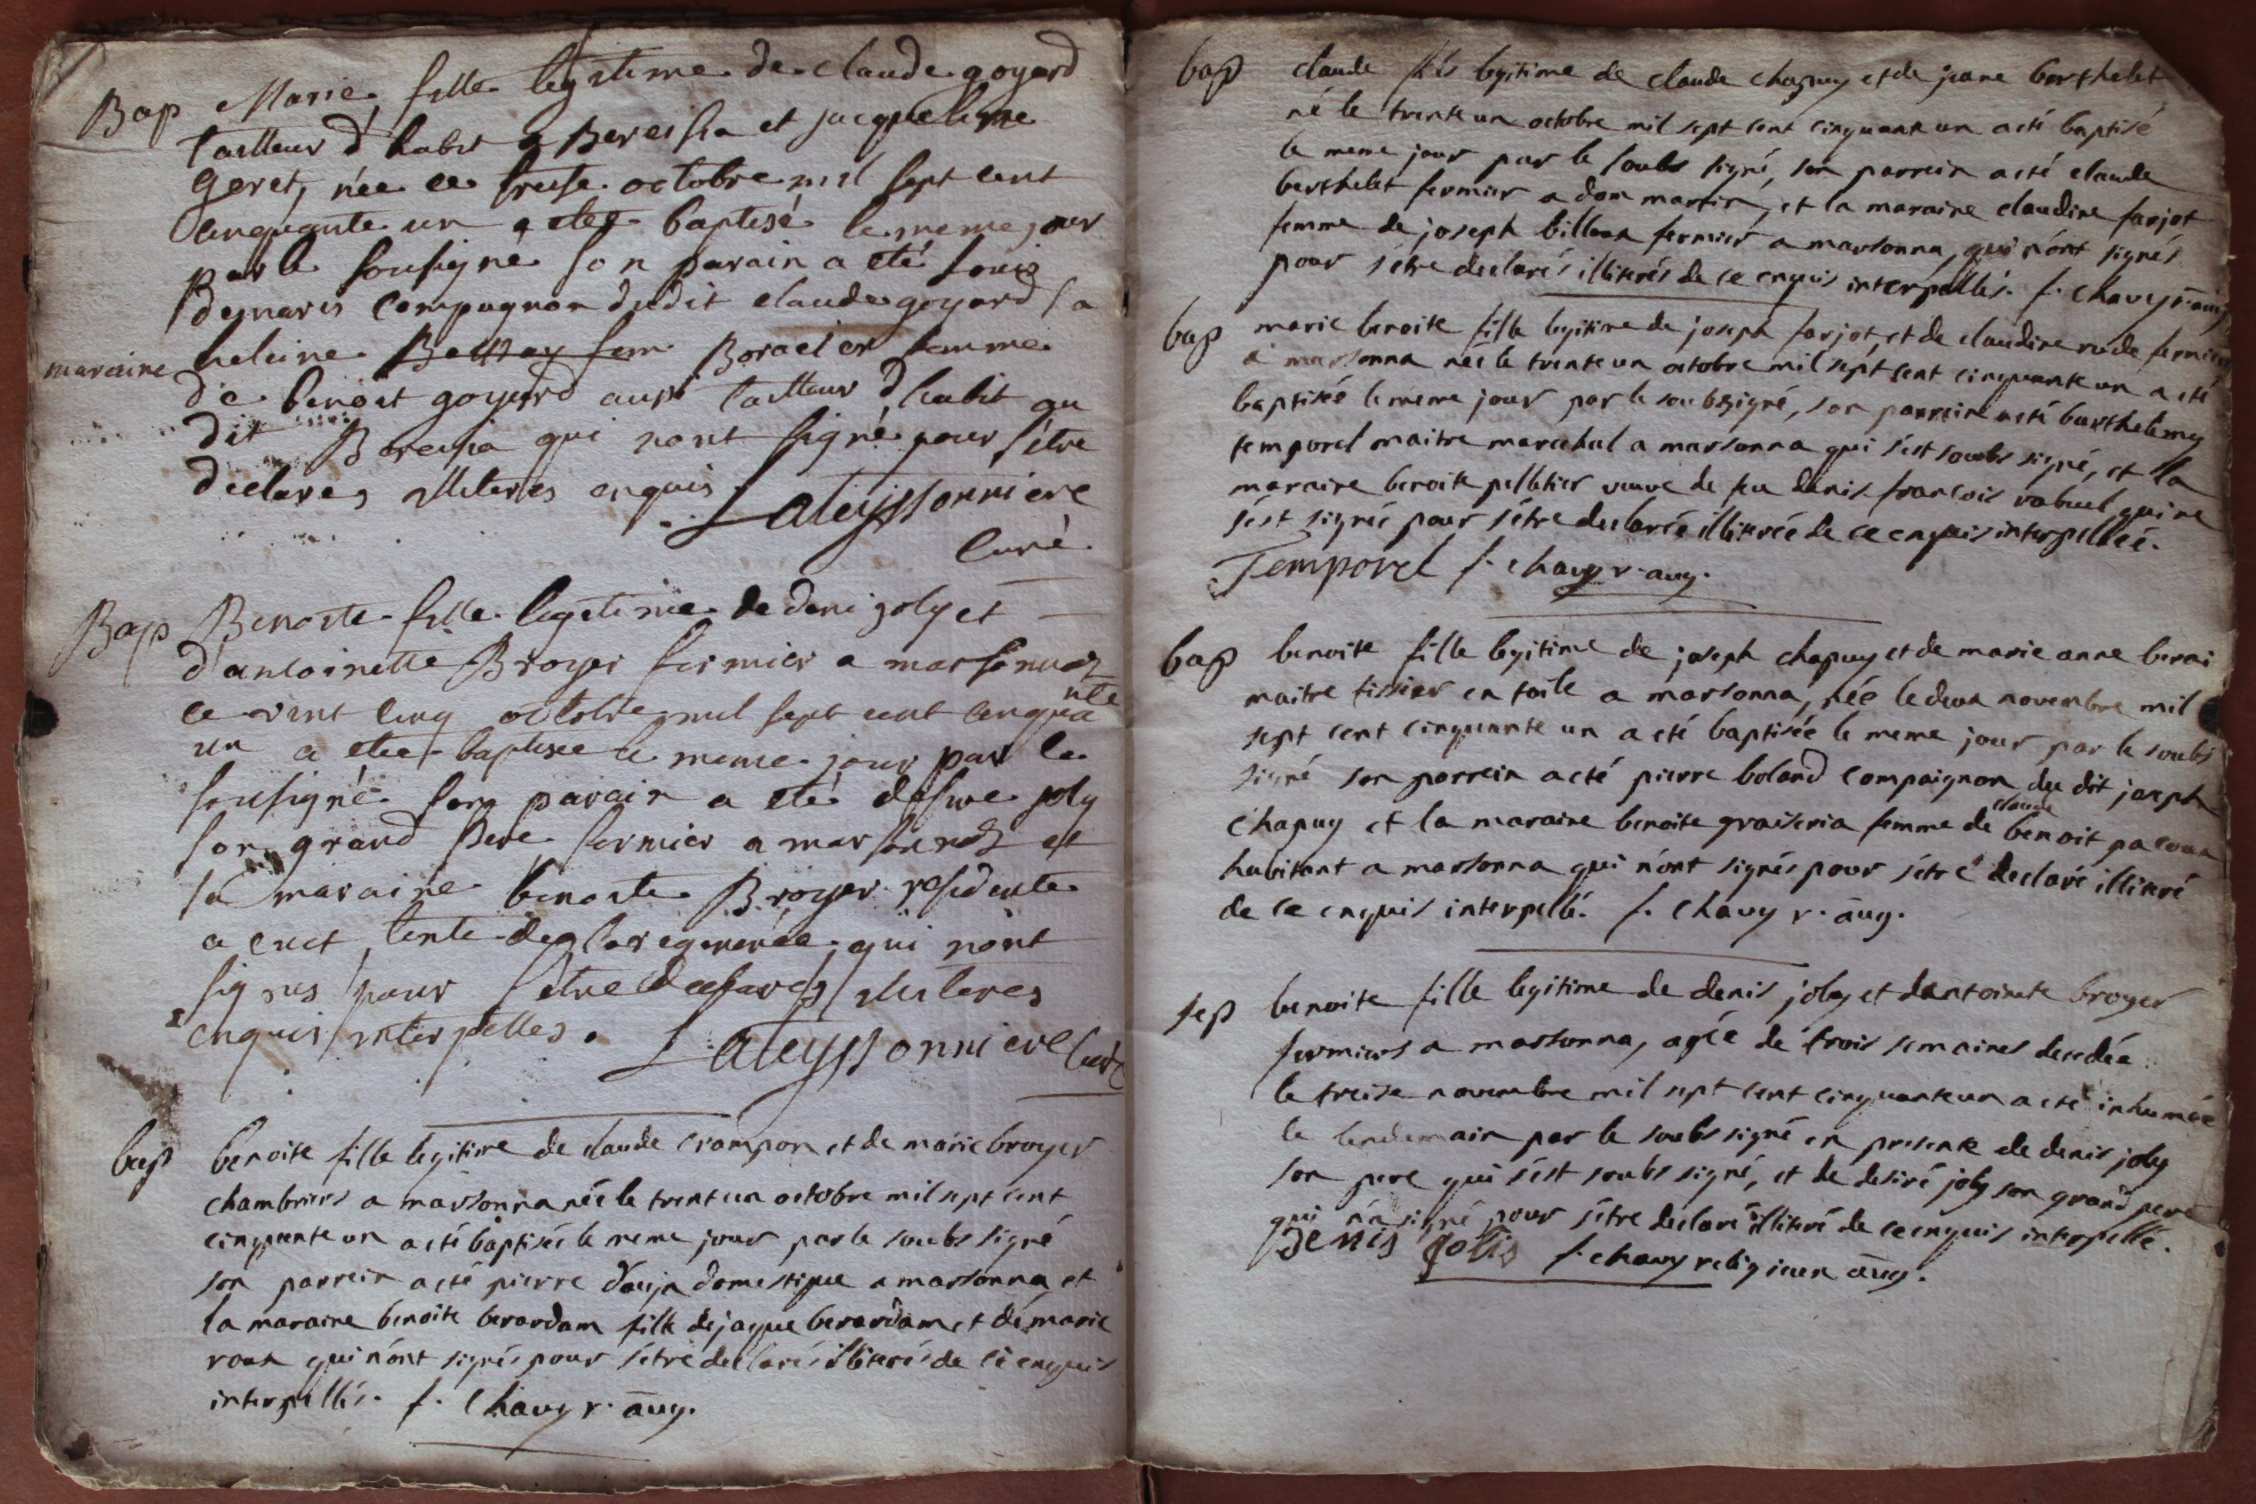 Bap Marie, fille legitime de claude goyard
tailleur d'habit a Bereisia et jacqueline
geret, née ce treise octobre mil sept cent
cinquante un a etee baptisé le meme jour
par le sousigné son parain a eté Louis
demaris compagnon dudit claude goyard sa
maraine heleine fem Boracier femme
de benoit goyard aussi tailleur d'habit au
dit Bereisia qui nont signé pour s'être
declares illiteres enquis.
Lateyssonniere
curé.
Bap Benoite fille legitime de deni joly et
d'antoinette Broyer fermier a marsonnaz
ce vint cinq octobre mil sept cent cinquante
un a etee baptisee le meme jour par le
sousigné son parain a eté desire joly
son grand pere fermier a marsonnaz et
sa maraine benoite Broyer residente
a cuet, tente de la regenerée, qui nont
signes pour s'etre declares illiteres
enquis interpelles. Lateyssonniere curé
bap benoite fille legitime de claude crampon et de marie broyer
chambriers a marsonna née le trent un octobre mil sept cent
cinquante un a eté baptisée le meme jour par le soubs signé
son parrein a eté pierre domestique a marsonna et
la maraine benoite berardam fille de jaque berardam et de marie
roux qui n'ont signés pour s'étre declarés illiterés de ce enquis
interpellés. f. Chavy r. aug.
bap claude fils legitime de claude chapuy et de jeane berthelet
né le trente un octobre mil sept cent cinquante un a eté baptisé
le meme jour par le soubs signé, son parrein a eté claude
berthelet fermier a dom martin, et la maraine claudine farjot
femme de joseph billoux fermier a marsonna, qui n'ont signés
pour s'étre declarés illiterés de ce enquis interpellés. f. chavy r. aug.
bap marie benoite fille legitime de joseph farjot, et de claudine rude fermiers
a marsonna née le trente un octobre mil sept cent cinquante un a eté
baptisée le meme jour par le soubsigné, son parrein a eté barthelemy
temporel maitre marechal a marsonna qui s'est soubs signé, et la
maraine benoite pelletier veuve de feu denis françois rabuel, qui ne
s'est signée pour s'étre declarée illiterée de ce enquis interpellée.
Temporel f. chavy r. aug.
bap benoite fille legitime de joseph chapuy et de marie anne berai
maitre tissier en toile a marsonna, née le deux novembre mil
sept cent cinquante un a eté baptisée le meme jour par le soubs
signé son parrein a eté pierre boland compaignon du dit joseph
chapuy et la maraine benoite graiseria femme de claude benoit pacoux
habitant a marsonna qui n'ont signés pour s'étre declaré illiteré
de ce enquis interpellé. f. chavy r. aug.
sep benoite fille legitime de denis joly et d'antoinete broyer
fermiers a marsonna, agée de trois semaines decedée
le treise novembre mil sept cent cinquante un a eté inhumée
le lendemain par le soubs signé en presence de denis joly
son pere qui s'est soubs signé, et de desiré joly son grand pere
qui n'a signé pour s'étre declaré illiteré de ce enquis interpellé.
Denis Jolis f. chavy religieux aug.